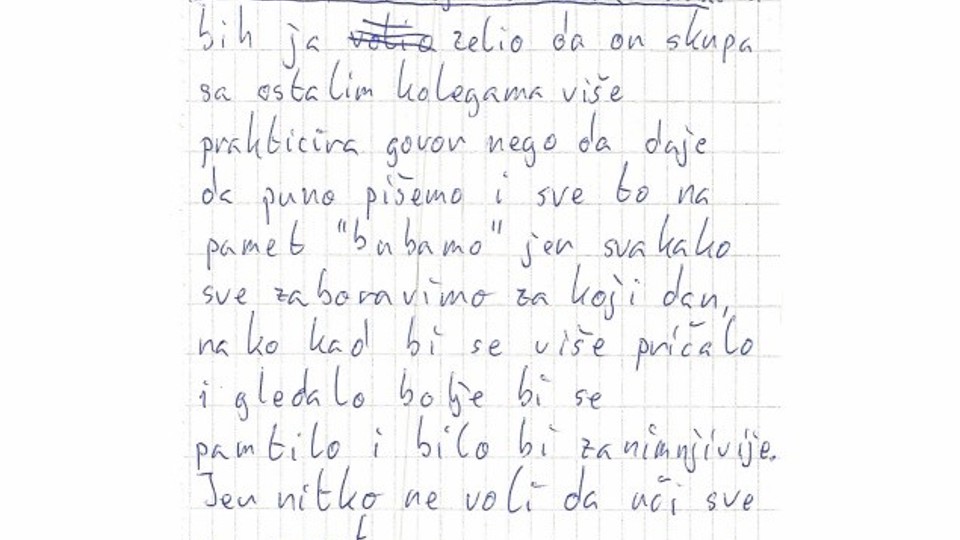 bih ja volio zelio da on skupa
sa ostalim kolegama više
prakticira govor nego da daje
da puno pišemo i sve to na
pamet "bubamo" jer svakako
sve zaboravimo za koji dan,
nako kad bi se više pričalo
i gledalo bolje bi se
pamtilo i bilo bi zanimnjivije.
Jer nitko ne voli da uči sve